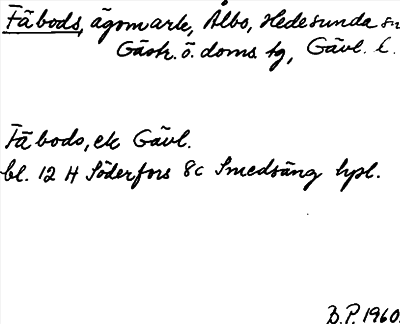 Fäbods, ägomark, Ålbo, Hedesunda sn
Gästr. ö. doms tg, Gävl. l.
Fäbods, ek Gävl.
bl. 12 H Söderfors 8c Smedsäng hpl.
B.P. 1960.